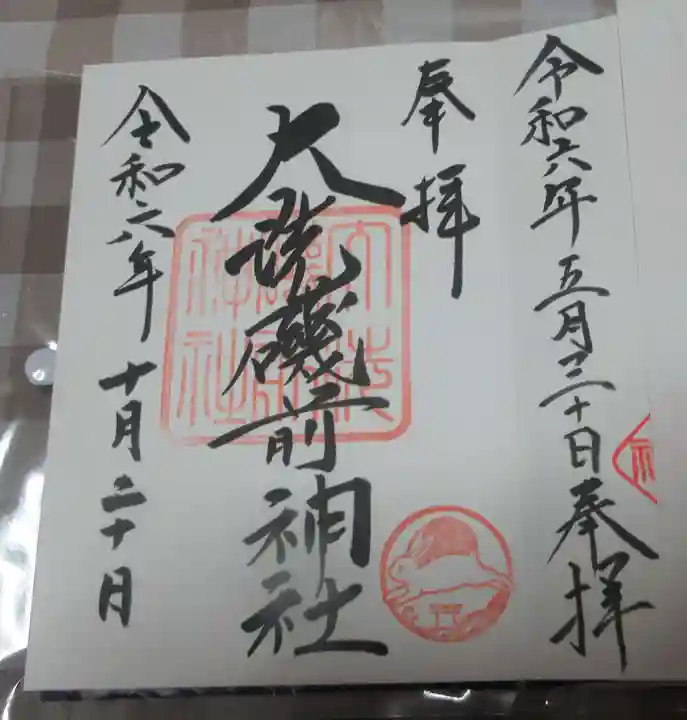 令和六年五月三十日奉拝
奉拝
大洗磯前神社
大洗
磯前
神社
令和六年十月二十日